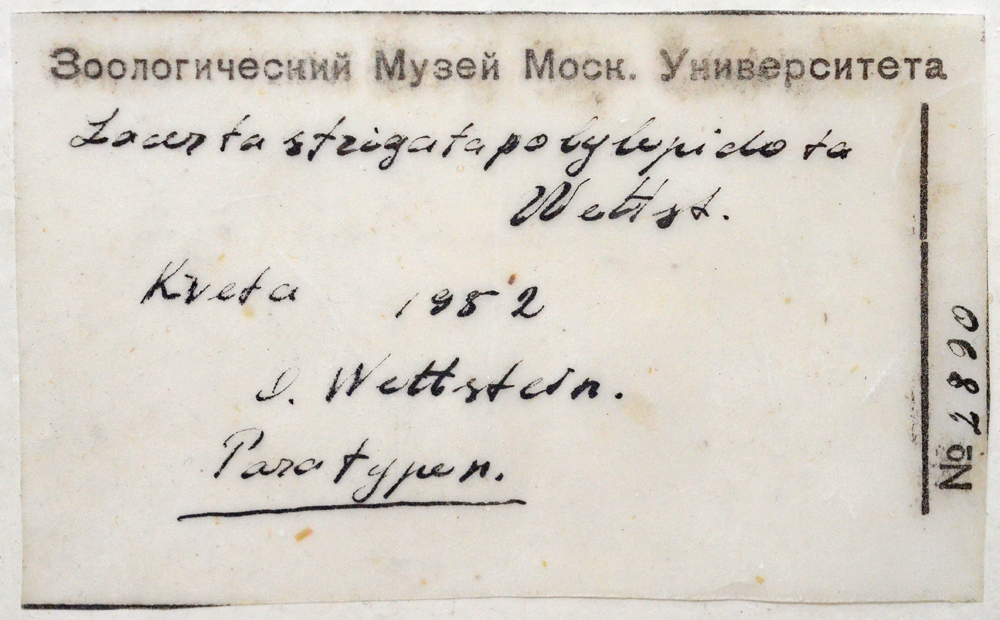 Зоологический Музей Моск. Университета
Lacerta strigata polylepidota
Wettst.
Kreta 1952
O. Wettstein.
Paratypen.
№ 2890